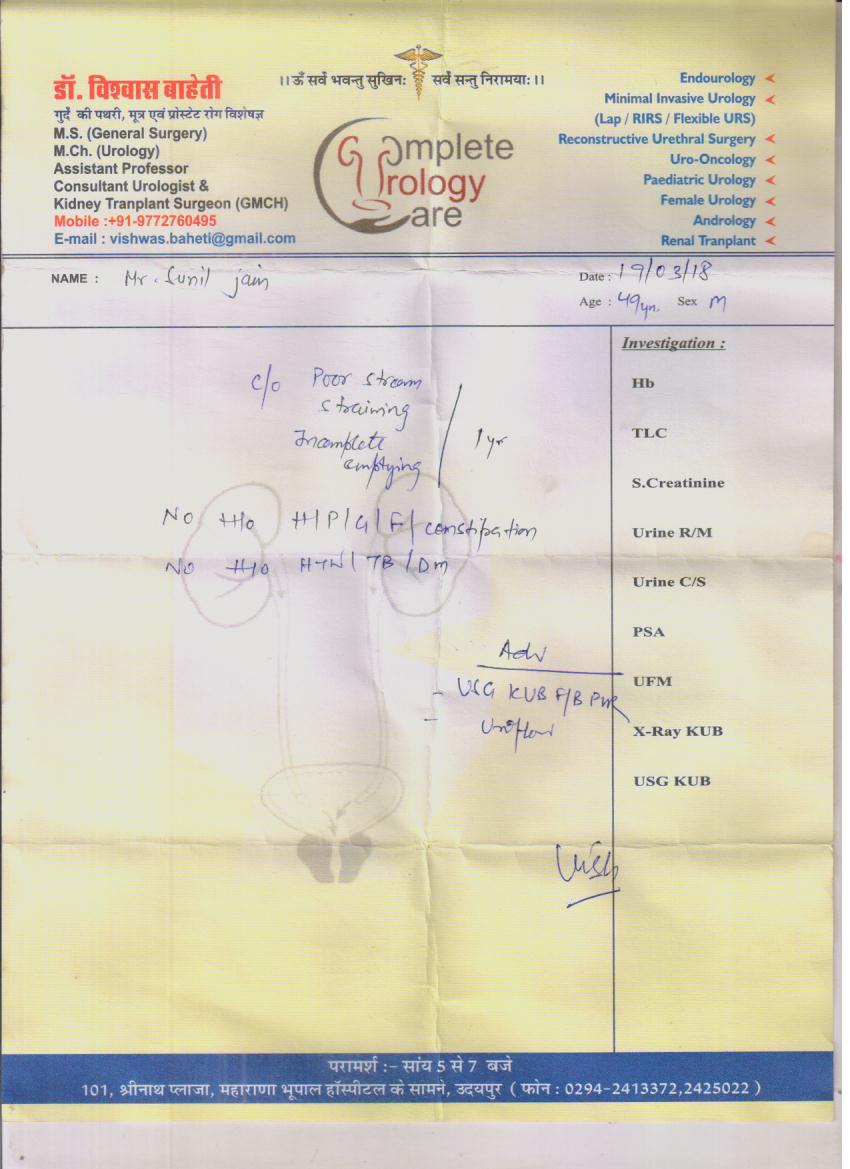 ।।ॐ सर्वे भवन्तु सुखिनः सर्वे सन्तु निरामयाः।।
डॉ. विश्वास बाहेती
गुर्दे की पथरी, मूत्र एवं प्रोस्टेट रोग विशेषज्ञ
M.S. (General Surgery)
M.Ch. (Urology)
Assistant Professor
Consultant Urologist &
Kidney Tranplant Surgeon (GMCH)
Mobile :+91-9772760495
E-mail : vishwas.baheti@gmail.com
Complete
Urology
Care
Endourology
Minimal Invasive Urology
(Lap / RIRS / Flexible URS)
Reconstructive Urethral Surgery
Uro-Oncology
Paediatric Urology
Female Urology
Andrology
Renal Tranplant
NAME : Mr. Sunil jain
Date : 19/03/18
Age : 49yr. Sex M
c/o Poor stream
straining
Incomplete
emptying
1 yr
No H/o H/P/G/F/ constipation
No H/o HTN/ TB / DM
Adv
- USG KUB F/B PVR
- Uroflow
Vish
Investigation :
Hb
TLC
S.Creatinine
Urine R/M
Urine C/S
PSA
UFM
X-Ray KUB
USG KUB
परामर्श :- सांय 5 से 7 बजे
101, श्रीनाथ प्लाजा, महाराणा भूपाल हॉस्पीटल के सामने, उदयपुर ( फोन : 0294-2413372,2425022 )